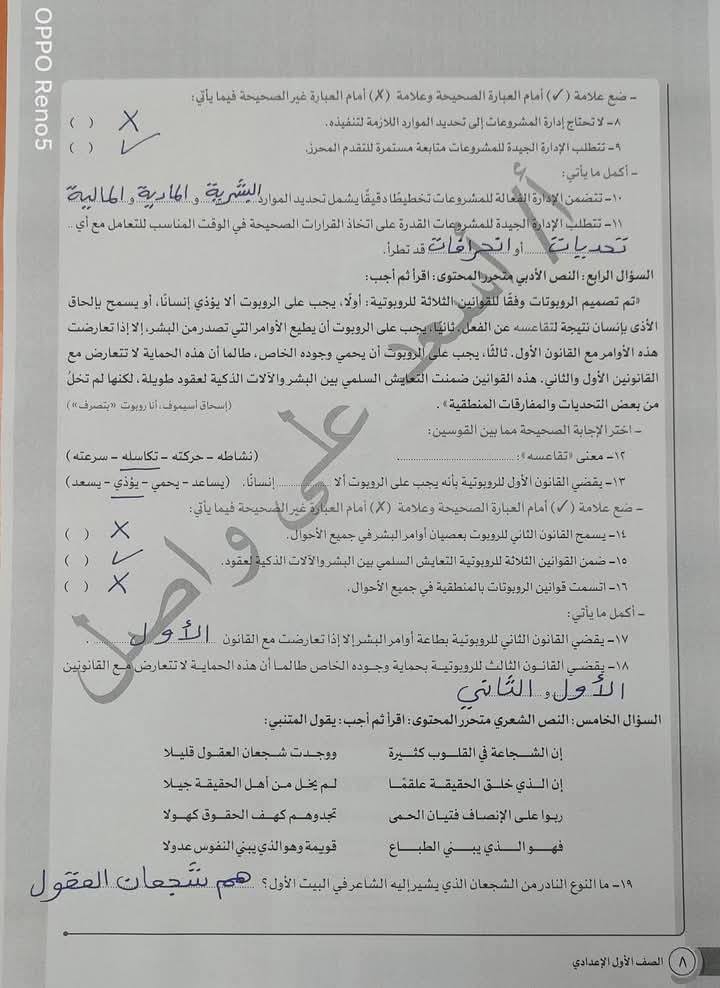 OPPO Reno5
- ضع علامة (✓) أمام العبارة الصحيحة وعلامة (✗) أمام العبارة غير الصحيحة فيما يأتي:
٨- لا تحتاج إدارة المشروعات إلى تحديد الموارد اللازمة لتنفيذه. ✗ ( )
٩- تتطلب الإدارة الجيدة للمشروعات متابعة مستمرة للتقدم المحرز. ✓ ( )
- أكمل ما يأتي:
١٠- تتضمن الإدارة الفعالة للمشروعات تخطيطًا دقيقًا يشمل تحديد الموارد البشرية و المادية و المالية
١١- تتطلب الإدارة الجيدة للمشروعات القدرة على اتخاذ القرارات الصحيحة في الوقت المناسب للتعامل مع أي ..
تحديات أو انحرافات قد تطرأ.
السؤال الرابع: النص الأدبي متحرر المحتوى: اقرأ ثم أجب:
«تم تصميم الروبوتات وفقًا للقوانين الثلاثة للروبوتية: أولًا، يجب على الروبوت ألا يؤذي إنسانًا، أو يسمح بإلحاق
الأذى بإنسان نتيجة لتقاعسه عن الفعل. ثانيًا، يجب على الروبوت أن يطيع الأوامر التي تصدر من البشر، إلا إذا تعارضت
هذه الأوامر مع القانون الأول. ثالثًا، يجب على الروبوت أن يحمي وجوده الخاص، طالما أن هذه الحماية لا تتعارض مع
القانونين الأول والثاني. هذه القوانين ضمنت التعايش السلمي بين البشر والآلات الذكية لعقود طويلة، لكنها لم تخلُ
من بعض التحديات والمفارقات المنطقية». (إسحاق أسيموف، أنا روبوت «بتصرف»)
- اختر الإجابة الصحيحة مما بين القوسين:
١٢- معنى «تقاعسه»: .......... (نشاطه - حركته - تكاسله - سرعته)
١٣- يقضي القانون الأول للروبوتية بأنه يجب على الروبوت ألا .......... إنسانًا. (يساعد - يحمي - يؤذي - يسعد)
- ضع علامة (✓) أمام العبارة الصحيحة وعلامة (✗) أمام العبارة غير الصحيحة فيما يأتي:
١٤- يسمح القانون الثاني للروبوت بعصيان أوامر البشر في جميع الأحوال. ✗ ( )
١٥- ضمن القوانين الثلاثة للروبوتية التعايش السلمي بين البشر والآلات الذكية لعقود. ✓ ( )
١٦- اتسمت قوانين الروبوتات بالمنطقية في جميع الأحوال. ✗ ( )
- أكمل ما يأتي:
١٧- يقضي القانون الثاني للروبوتية بطاعة أوامر البشر إلا إذا تعارضت مع القانون الأول .
١٨- يقضي القانون الثالث للروبوتية بحماية وجوده الخاص طالما أن هذه الحماية لا تتعارض مع القانونين
الأول و الثاني
السؤال الخامس: النص الشعري متحرر المحتوى: اقرأ ثم أجب: يقول المتنبي:
إن الشجاعة في القلوب كثيرة ووجدت شجعان العقول قليلا
إن الذي خلق الحقيقة علقمًا لم يخل من أهل الحقيقة جيلا
ربوا على الإنصاف فتيان الحمى تجدوهم كهف الحقوق كهولا
فهو الذي يبني الطباع قويمة وهو الذي يبني النفوس عدولا
١٩- ما النوع النادر من الشجعان الذي يشير إليه الشاعر في البيت الأول؟ هم شجعان العقول
٨ الصف الأول الإعدادي
أ/ أسعد على واصل